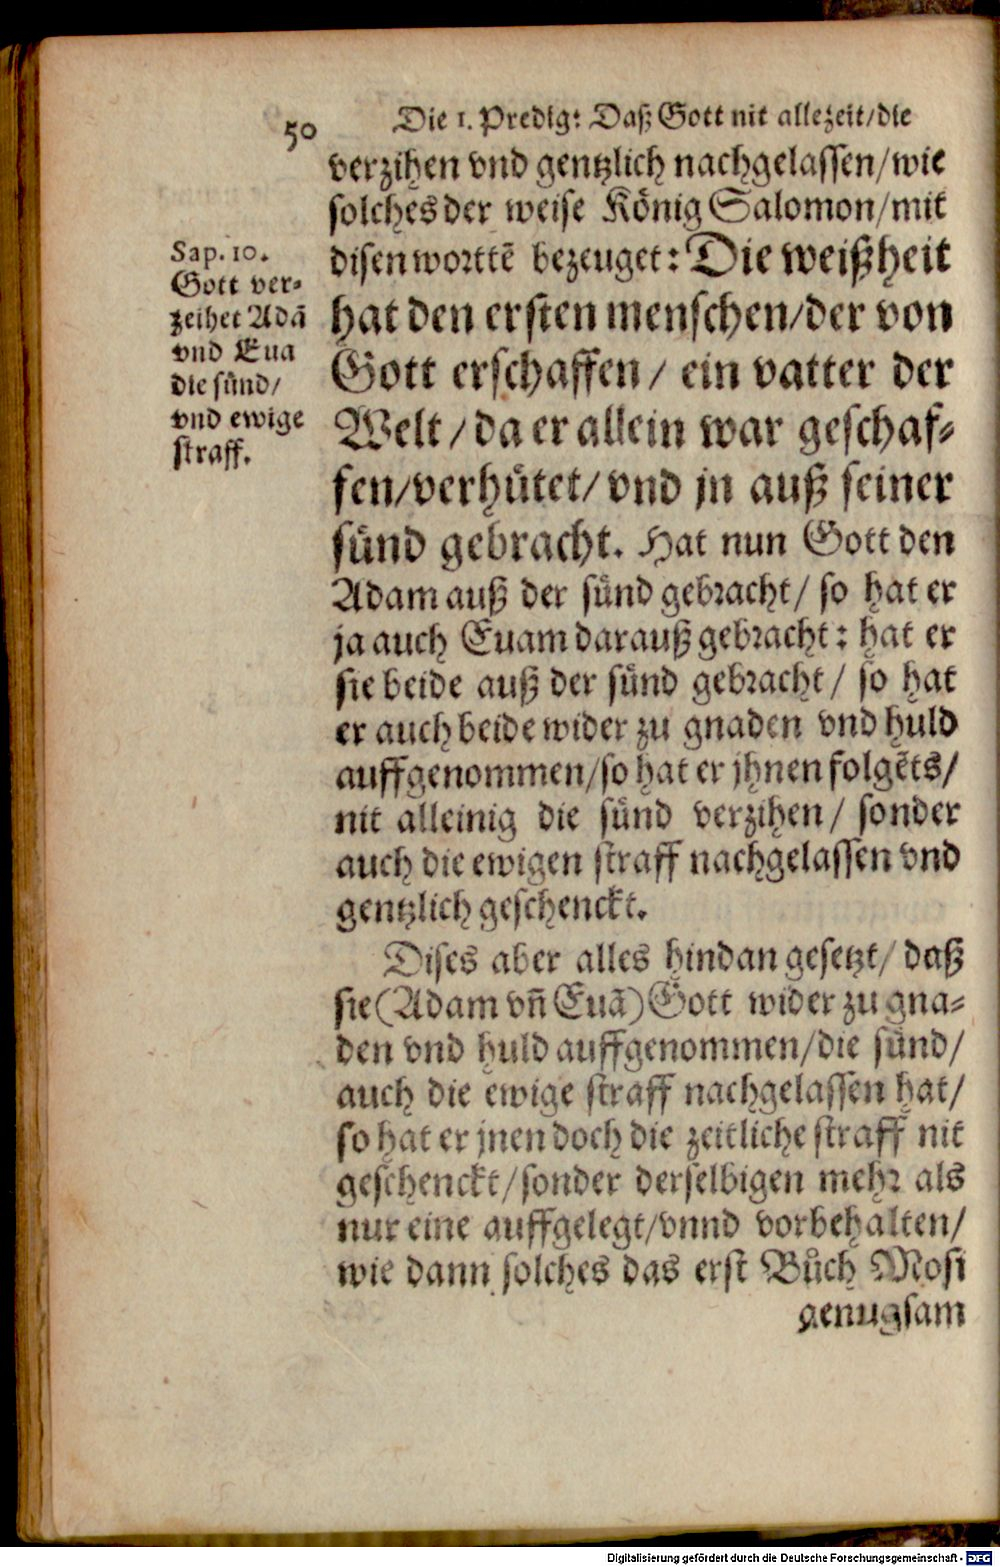 50 Die 1. Predigt Daß Gott nit allezeit/die
verzihen vnd gentzlich nachgelassen/wie
solches der weise König Salomon/mit
disen worttē bezeuget: Die weißheit
hat den ersten menschen/der von
Gott erschaffen/ ein vatter der
Welt/da er allein war geschaf-
fen/verhütet/ vnd jn auß seiner
sünd gebracht. Hat nun Gott den
Adam auß der sünd gebracht/ so hat er
ja auch Euam darauß gebracht: hat er
sie beide auß der sünd gebracht/ so hat
er auch beide wider zu gnaden vnd huld
auffgenommen/so hat er jhnen folgēts/
nit alleinig die sünd verzihen/ sonder
auch die ewigen straff nachgelassen vnd
gentzlich geschenckt.
Sap. 10.
Gott ver-
zeihet Adā
vnd Eua
die sünd/
vnd ewige
straff.
Dises aber alles hindan gesetzt/ daß
sie (Adam vñ Euā) Gott wider zu gna-
den vnd huld auffgenommen/die sünd/
auch die ewige straff nachgelassen hat/
so hat er jnen doch die zeitliche straff nit
geschenckt/sonder derselbigen mehr als
nur eine auffgelegt/vnnd vorbehalten/
wie dann solches das erst Bůch Mosi
genugsam
Digitalisierung gefördert durch die Deutsche Forschungsgemeinschaft - DFG